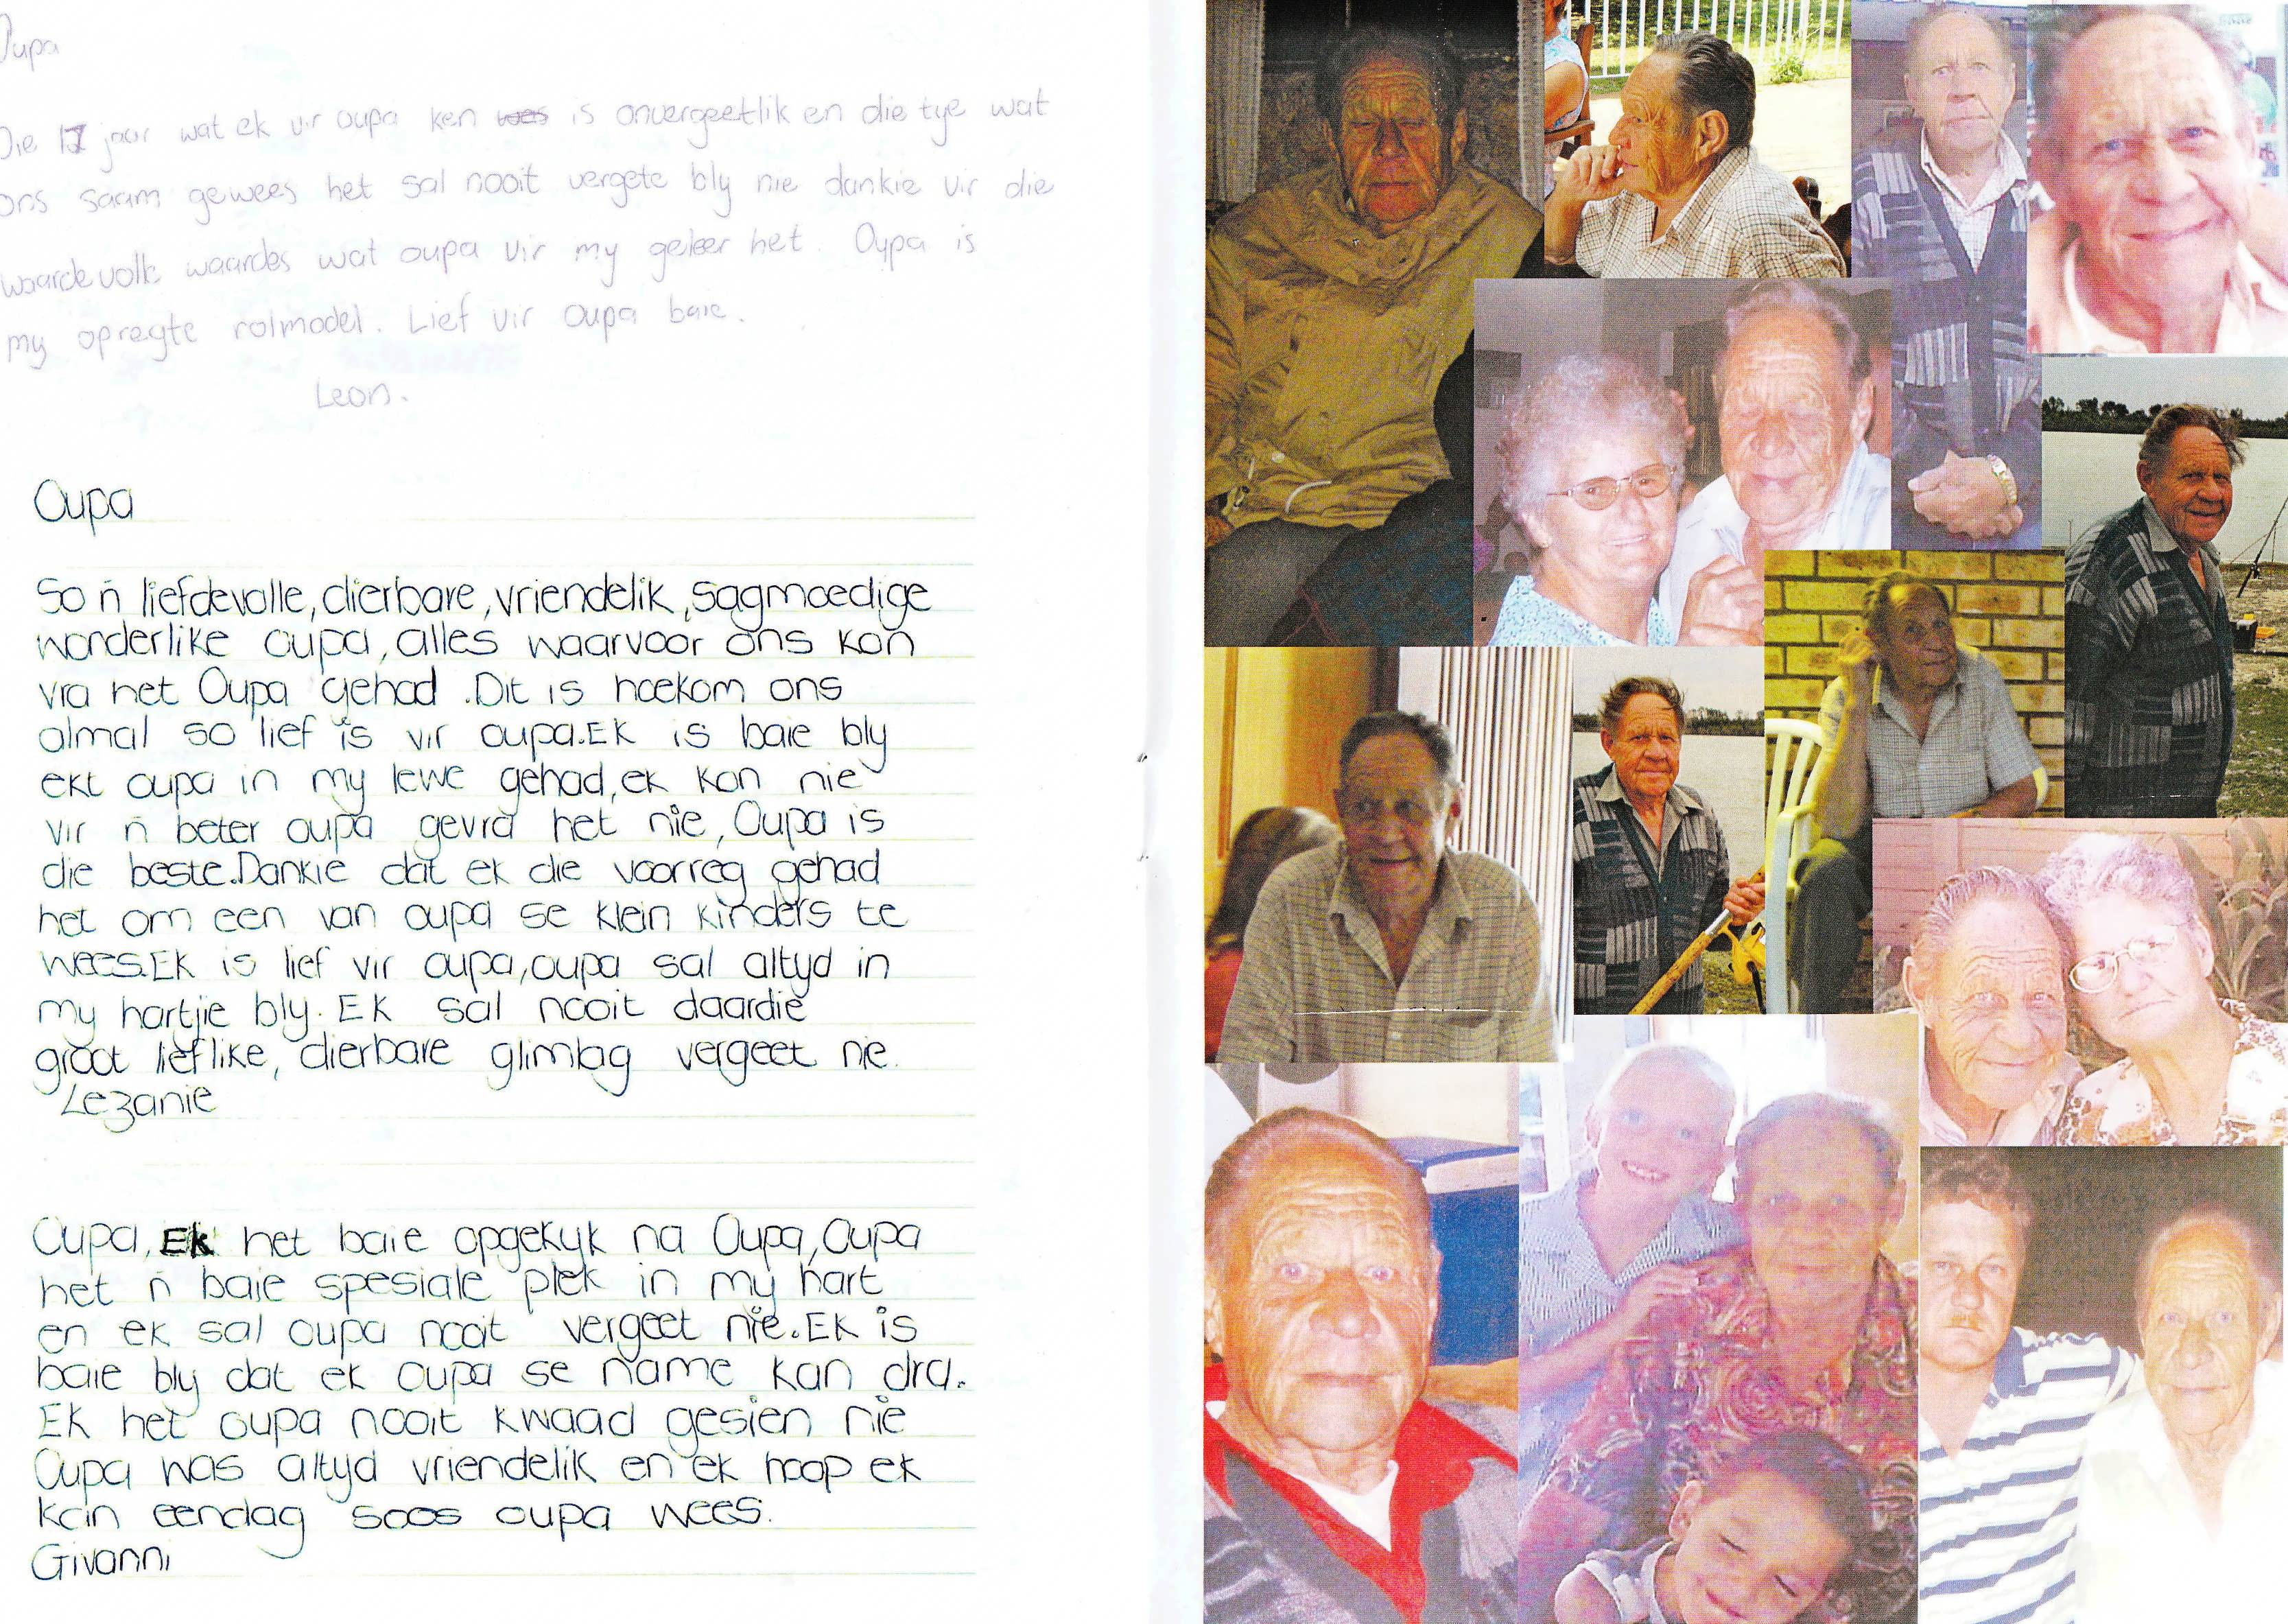 Oupa
Die 17 jaar wat ek vir oupa ken was is onvergeetlik en die tye wat
ons saam gewees het sal nooit vergete bly nie dankie vir die
waardevolle waardes wat oupa vir my geleer het. Oupa is
my opregte rolmodel. Lief vir Oupa baie.
Leon.
Oupa
So ń liefdevolle, dierbare, vriendelik, sagmoedige
wonderlike oupa, alles waarvoor ons kon
vra het Oupa gehad. Dit is hoekom ons
almal so lief is vir oupa. Ek is baie bly
ekt oupa in my lewe gehad, ek kon nie
vir ń beter oupa gevra het nie, Oupa is
die beste. Dankie dat ek die voorreg gehad
het om een van oupa se klein kinders te
wees. Ek is lief vir oupa, oupa sal altyd in
my hartjie bly. Ek sal nooit daardie
groot lieflike, dierbare glimlag vergeet nie.
Lezanie
Oupa, Ek het baie opgekyk na Oupa, Oupa
het ń baie spesiale plek in my hart
en ek sal oupa nooit vergeet nie. Ek is
baie bly dat ek oupa se name kan dra.
Ek het oupa nooit kwaad gesien nie
Oupa was altyd vriendelik en ek hoop ek
kan eendag soos oupa wees.
Givanni